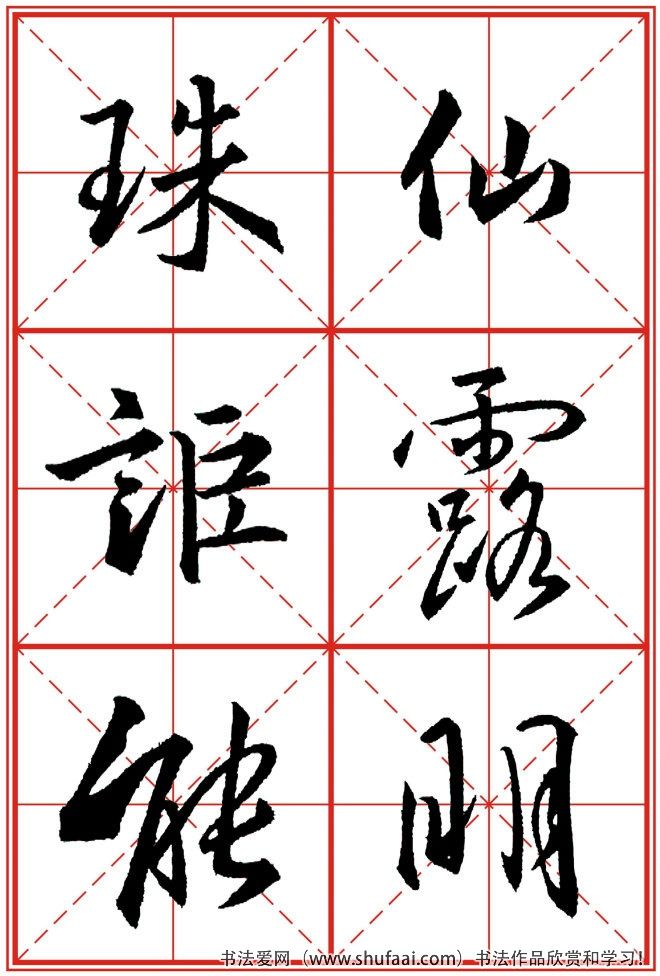 仙露明
珠詎能
书法爱网（www.shufaai.com）书法作品欣赏和学习!